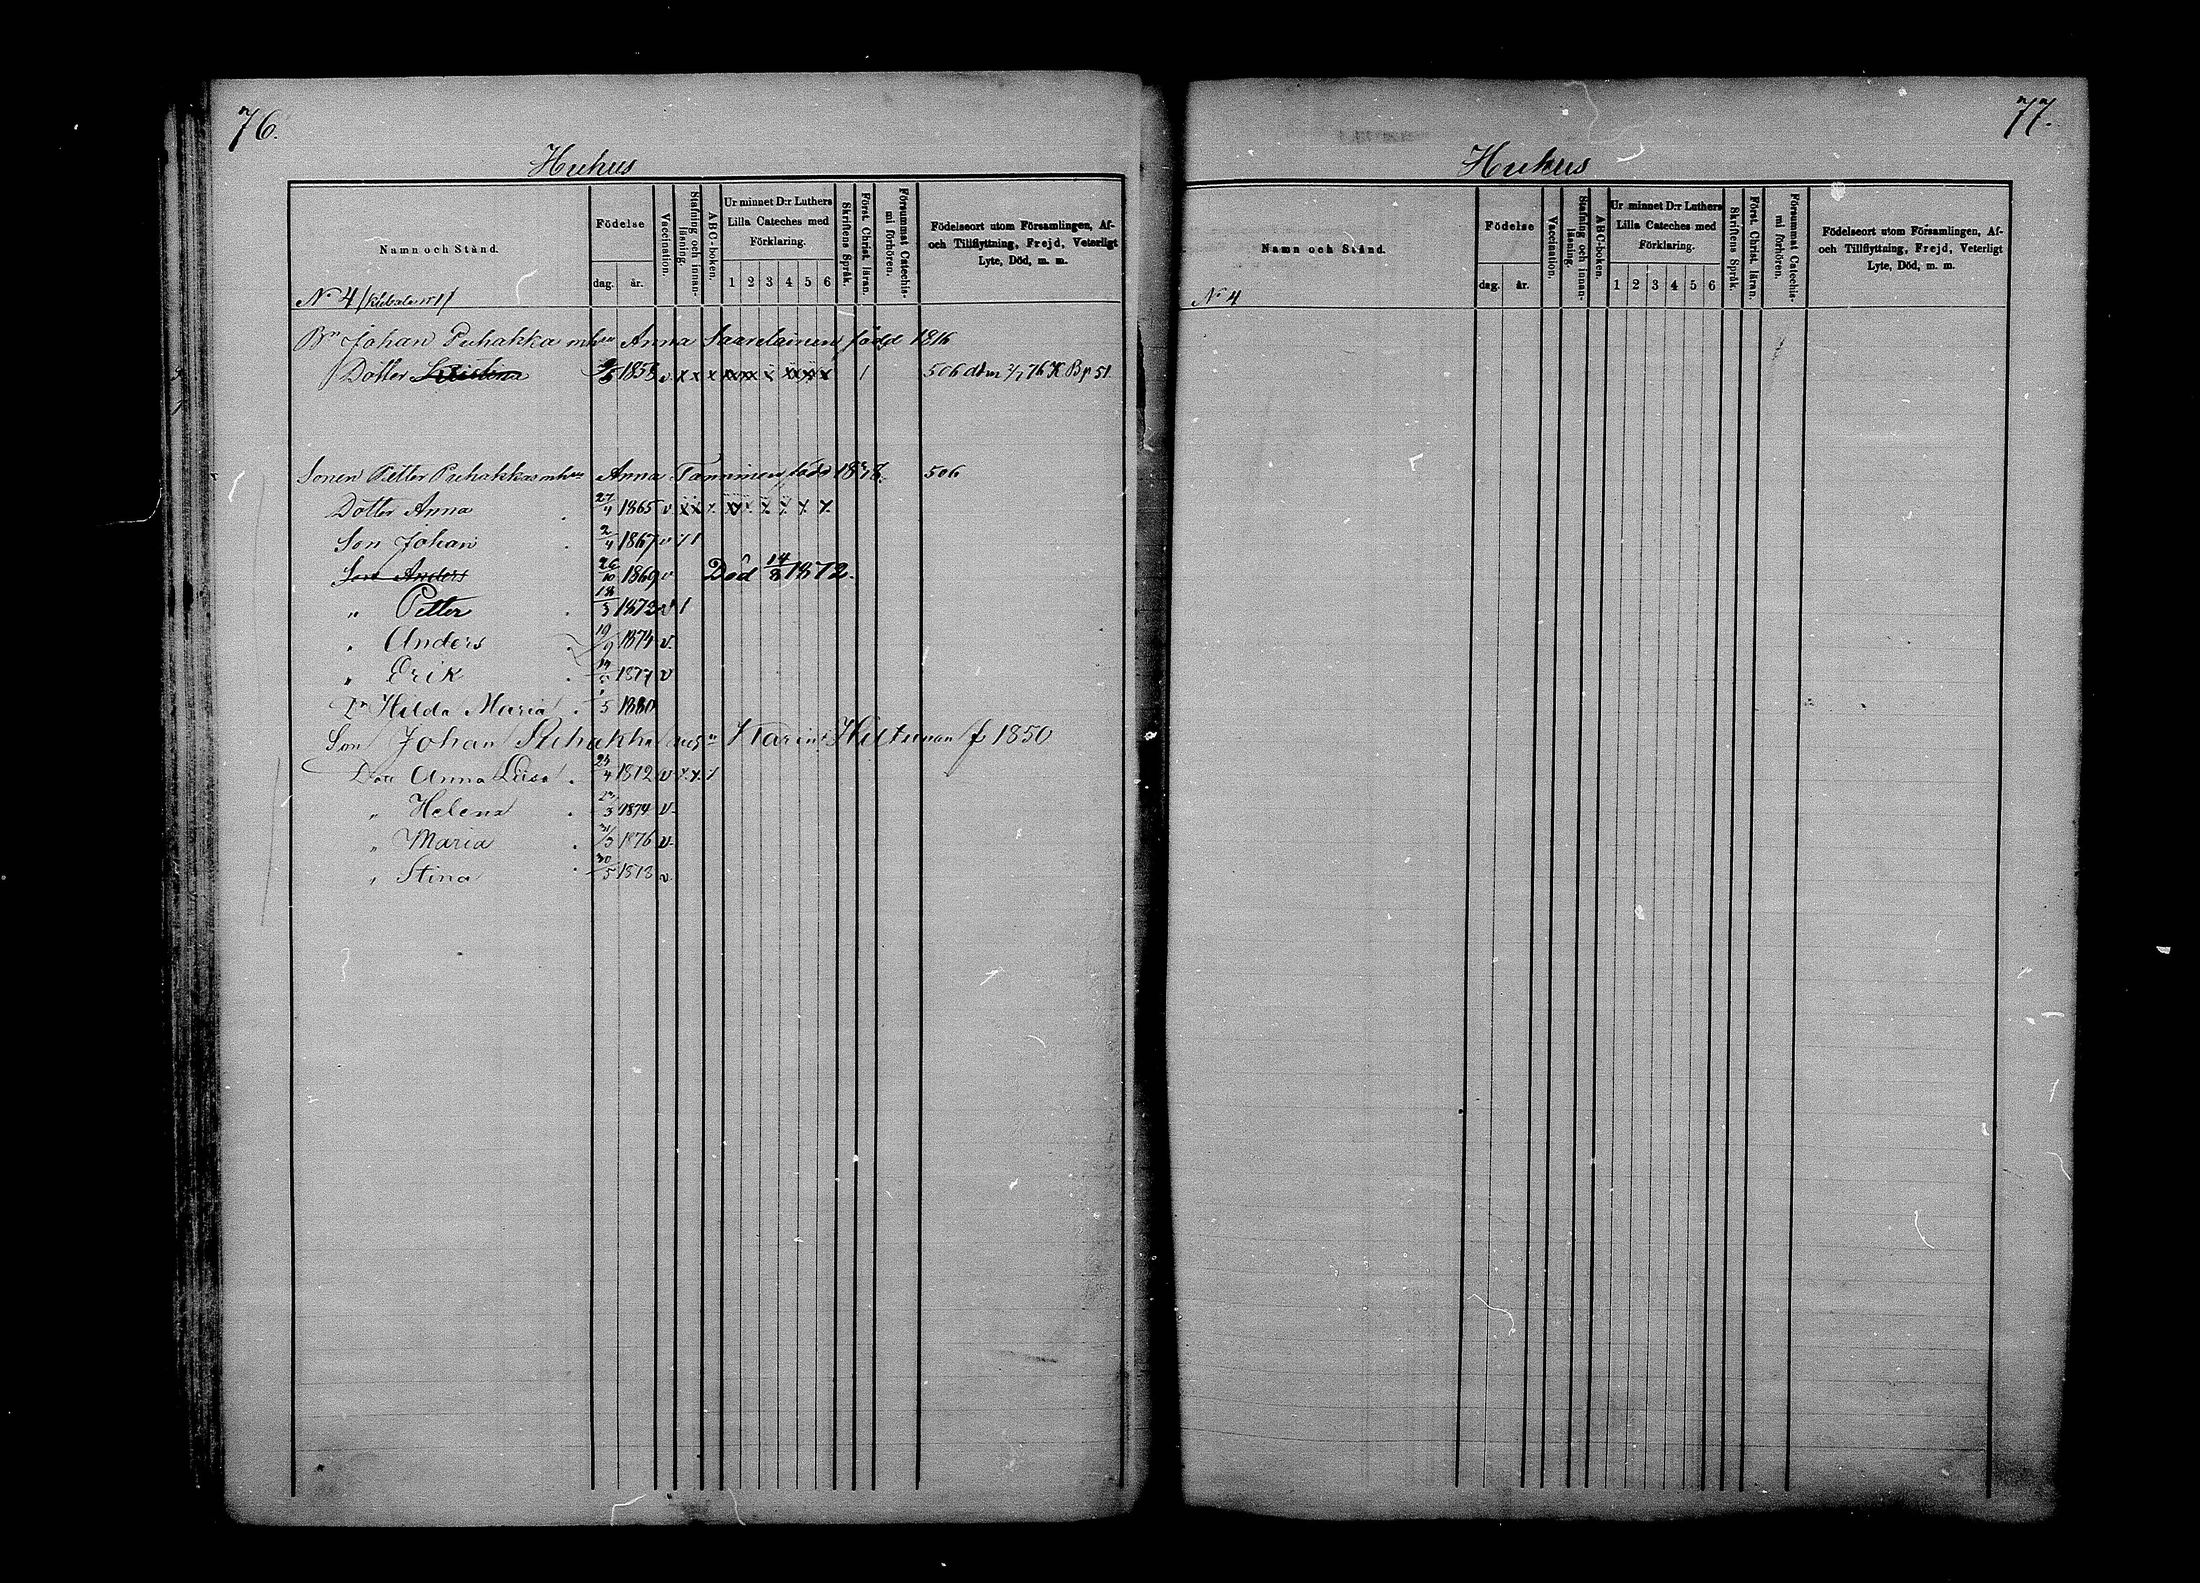 76.
Hukus
Namn och Stånd.
Födelse
dag. år.
Vaccination.
Stafning och innanläsning.
ABC-boken.
Ur minnet D:r Luthers Lilla Cateches med Förklaring.
1 2 3 4 5 6
Skriftens Språk.
Först. Christ. läran.
Försummat Catechismi förhören.
Födelseort utom Församlingen, Af- och Tillflyttning, Frejd, Veterligt Lyte, Död, m. m.
No 4
Bn Johan Puhakka mhu Anna Saarelainen född 1816
Dotter 1858 v x x x 1 506 76 K B p 51
Sonen Petter Puhakkas mhu Anna Tanninen född 506
Dotter Anna 27/4 1865 v x x
Son Johan 2/4 1867 v
Son Anders 26/10 1869 v Död 14/8 1872.
" Petter 18/3 1873 v 1
" Anders 19/9 1874 v.
" Erik 1877 v
Dr Hilda Maria 5 1880
Son Johan Puhakka Karin Hiltunen f 1850
Dott Anna Liisa v
" Helena 3 1874 v.
" Maria 31/3 1876 v.
" Stina 30/5 1878 v.
77.
Hukus
Namn och Stånd.
Födelse
dag. år.
Vaccination.
Stafning och innanläsning.
ABC-boken.
Ur minnet D:r Luthers Lilla Cateches med Förklaring.
1 2 3 4 5 6
Skriftens Språk.
Först. Christ. läran.
Försummat Catechismi förhören.
Födelseort utom Församlingen, Af- och Tillflyttning, Frejd, Veterligt Lyte, Död, m. m.
No 4